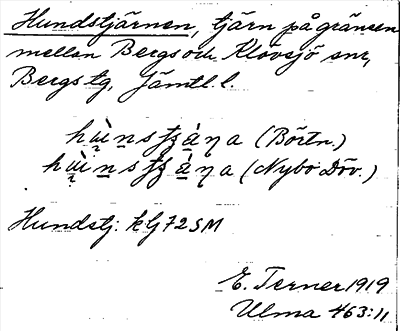 Hundstjärnen, tjärn på gränsen
mellan Bergs och Klövsjö snr,
Bergs tg, Jämtl. l.
(Börtn.)
(Nybo Döv.)
Hundstj: kGJ 72 SM
E. Terner 1919
Ulma 463:11